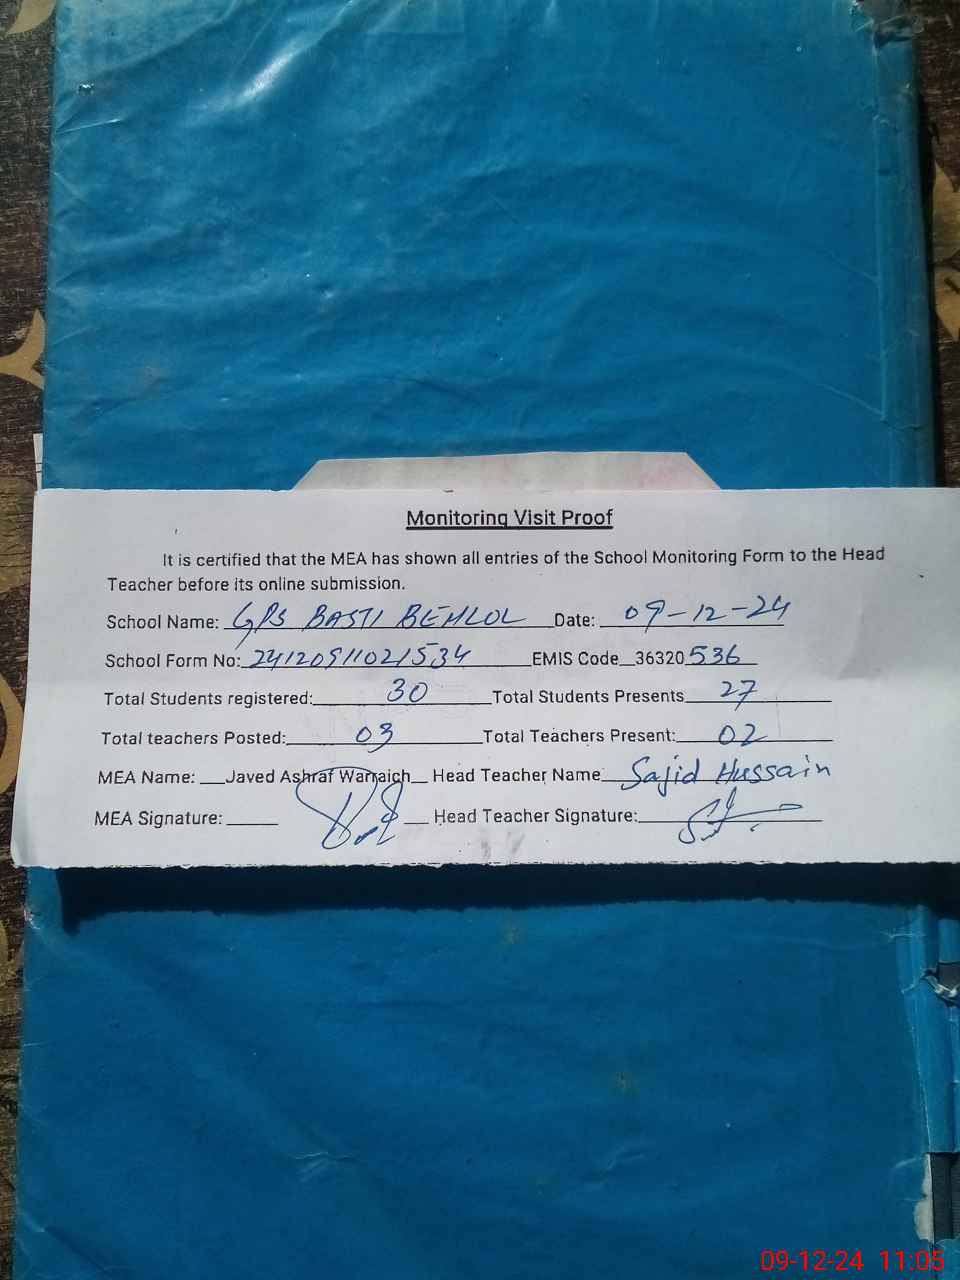 Monitoring Visit Proof
It is certified that the MEA has shown all entries of the School Monitoring Form to the Head
Teacher before its online submission.
School Name: GPS BASTI BEHLOL Date: 09-12-24
School Form No: 24120911021534 EMIS Code 36320536
Total Students registered: 30 Total Students Presents 27
Total teachers Posted: 03 Total Teachers Present: 02
MEA Name: Javed Ashraf Warraich Head Teacher Name Sajid Hussain
MEA Signature: Head Teacher Signature:
09-12-24 11:05